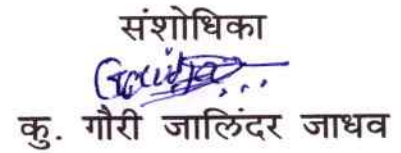 संशोधिका
कु. गौरी जालिंदर जाधव